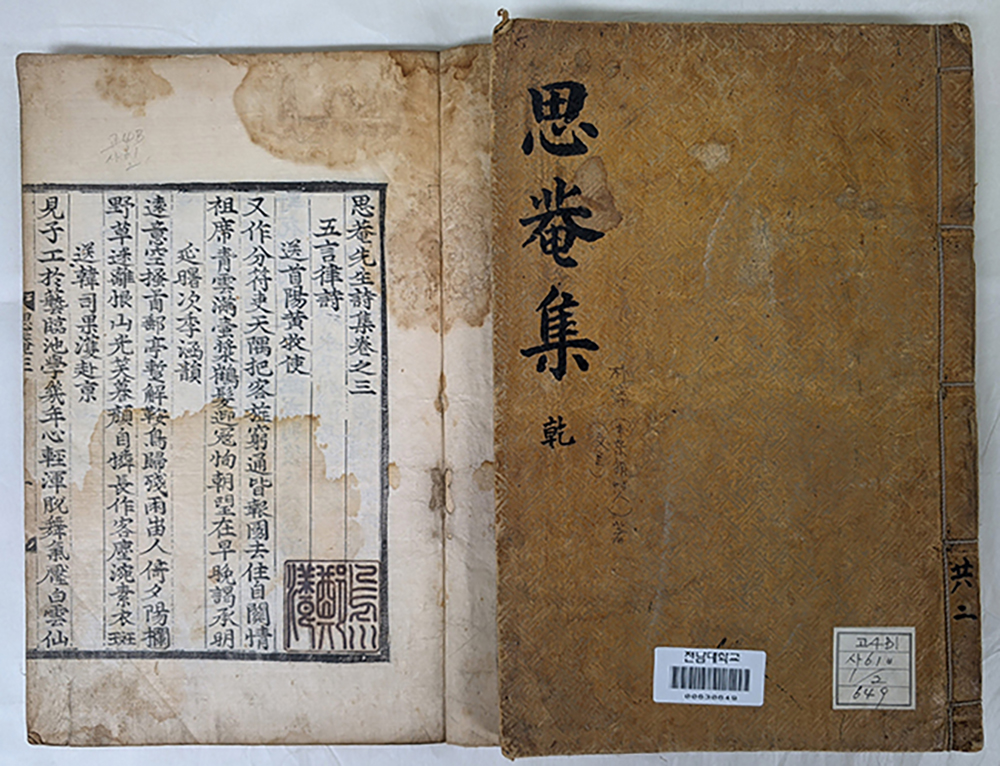 思菴先生詩集卷之三
五言律詩
送首陽黃牧使
又作分符吏天隅把客旌窮通皆報國去住自關情
祖席青雲滿 鶴髮迎 朝望在早晚謁承明
延曙次季涵韻
遠意空搔首郵亭暫解鞍鳥歸殘雨岫人倚夕陽欄
野草迷離恨山光笑暮顏自憐長作客塵涴素衣斑
送韓司果濩赴京
見子工於藝臨池學幾年心輕渾脫舞氣壓白雲仙
思菴集
乾
共二
전남대학교
00630649
고4B1
사61ㅂ
2
649